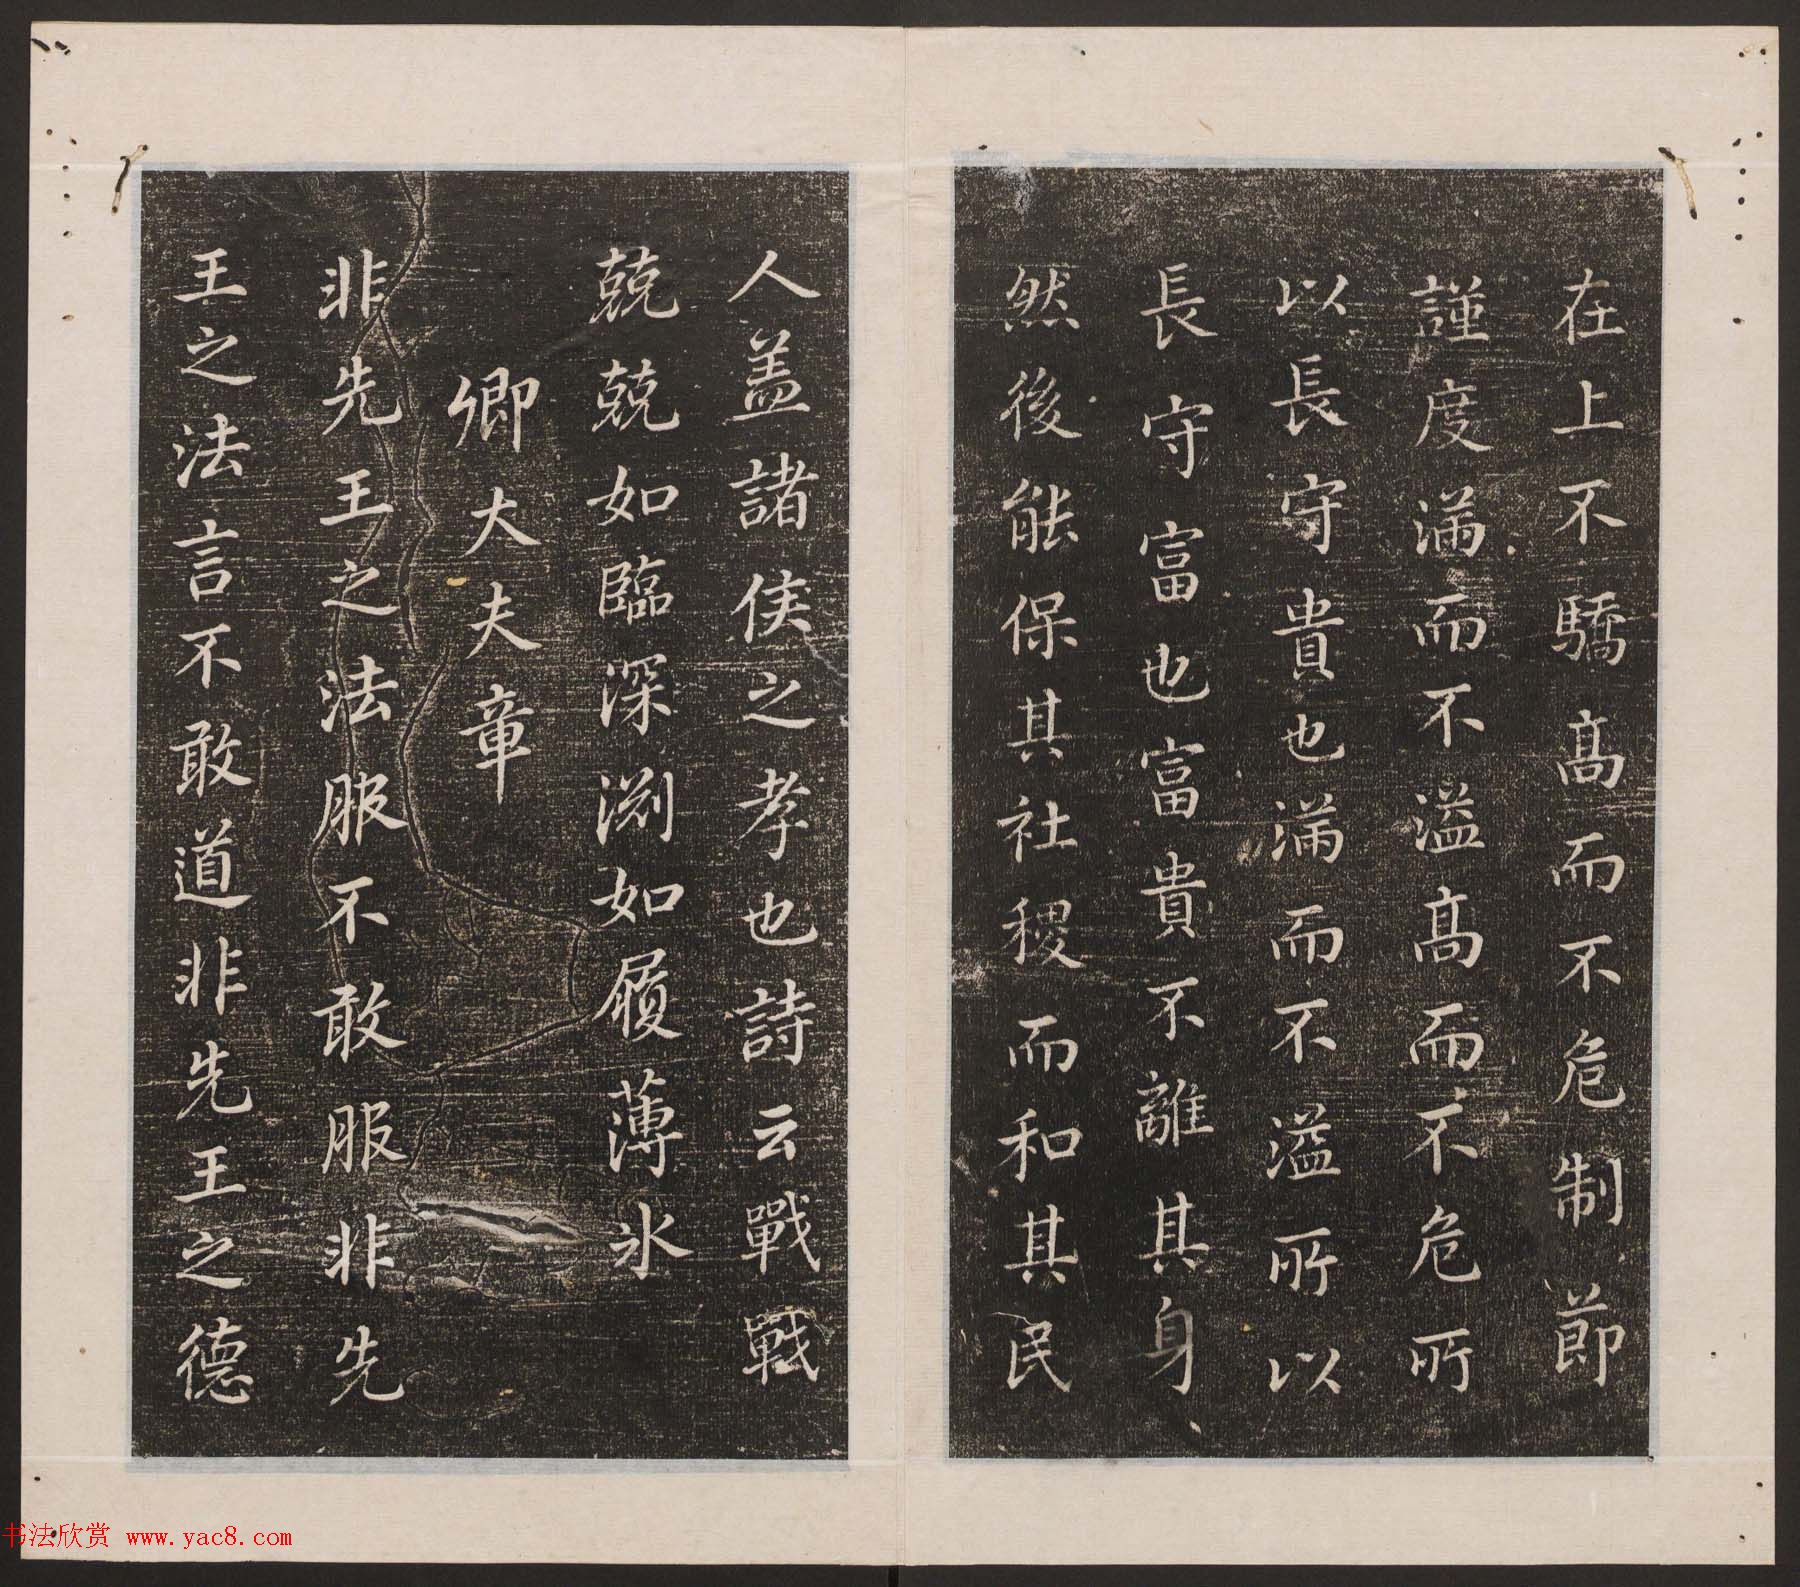 在上不驕高而不危制節
謹度滿而不溢高而不危所
以長守貴也滿而不溢所以
長守富也富貴不離其身
然後能保其社稷而和其民
人盖諸侯之孝也詩云戰戰
兢兢如臨深渕如履薄氷
卿大夫章
非先王之法服不敢服非先
王之法言不敢道非先王之德
书法欣赏 www.yac8.com